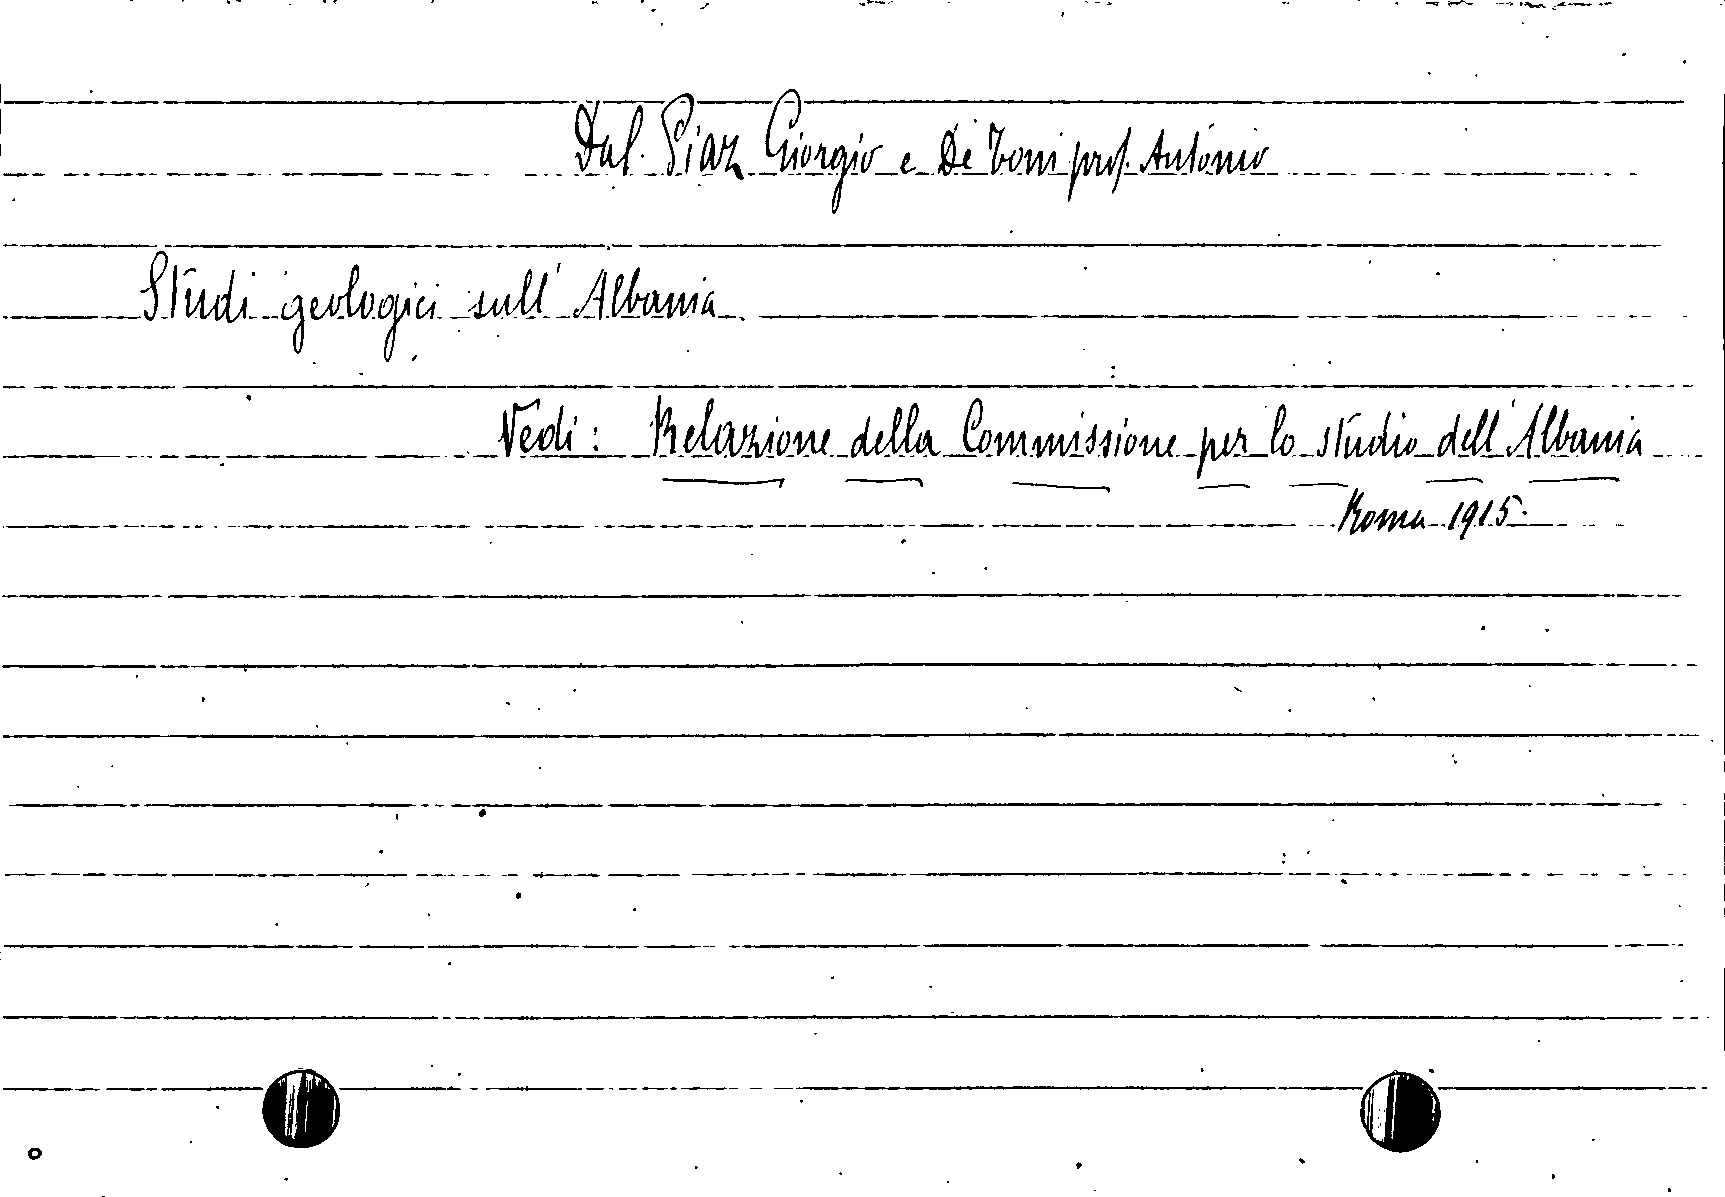 Dal Piaz Giorgio e De Toni prof. Antonio
Studi geologici sull' Albania
Vedi: Relazione della Commissione per lo studio dell'Albania
Roma 1915.